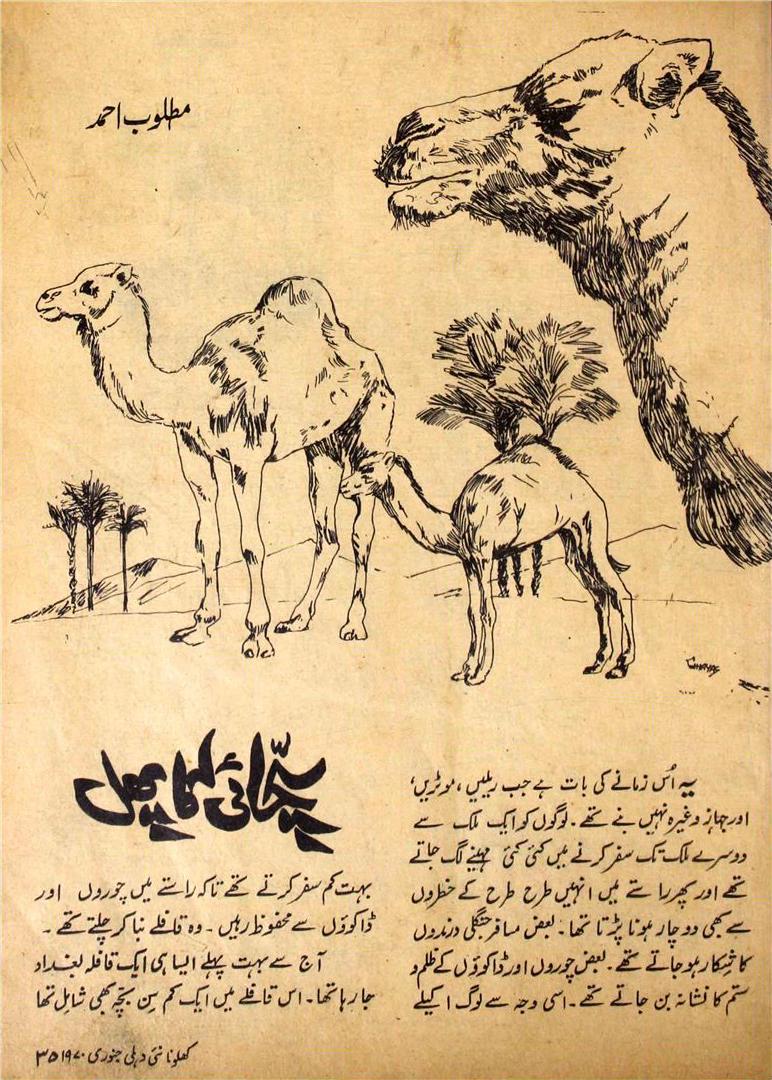 مطلوب احمد
سچّائی کا پھل
یہ اُس زمانے کی بات ہے جب ریلیں، موٹریں،
اور جہاز وغیرہ نہیں بنے تھے۔ لوگوں کو ایک ملک سے
دوسرے ملک تک سفر کرنے میں کئی کئی مہینے لگ جاتے
تھے اور پھر راستے میں انہیں طرح طرح کے خطروں
سے بھی دوچار ہونا پڑتا تھا۔ بعض مسافر جنگلی درندوں
کا شکار ہو جاتے تھے۔ بعض چوروں اور ڈاکوؤں کے ظلم و
ستم کا نشانہ بن جاتے تھے۔ اسی وجہ سے لوگ اکیلے
بہت کم سفر کرتے تھے تاکہ راستے میں چوروں اور
ڈاکوؤں سے محفوظ رہیں۔ وہ قافلے بنا کر چلتے تھے۔
آج سے بہت پہلے ایسا ہی ایک قافلہ بغداد
جا رہا تھا۔ اس قافلے میں ایک کم سِن بچّہ بھی شامل تھا
کھلونا نئی دہلی جنوری ۱۹۷۰ ۳۵